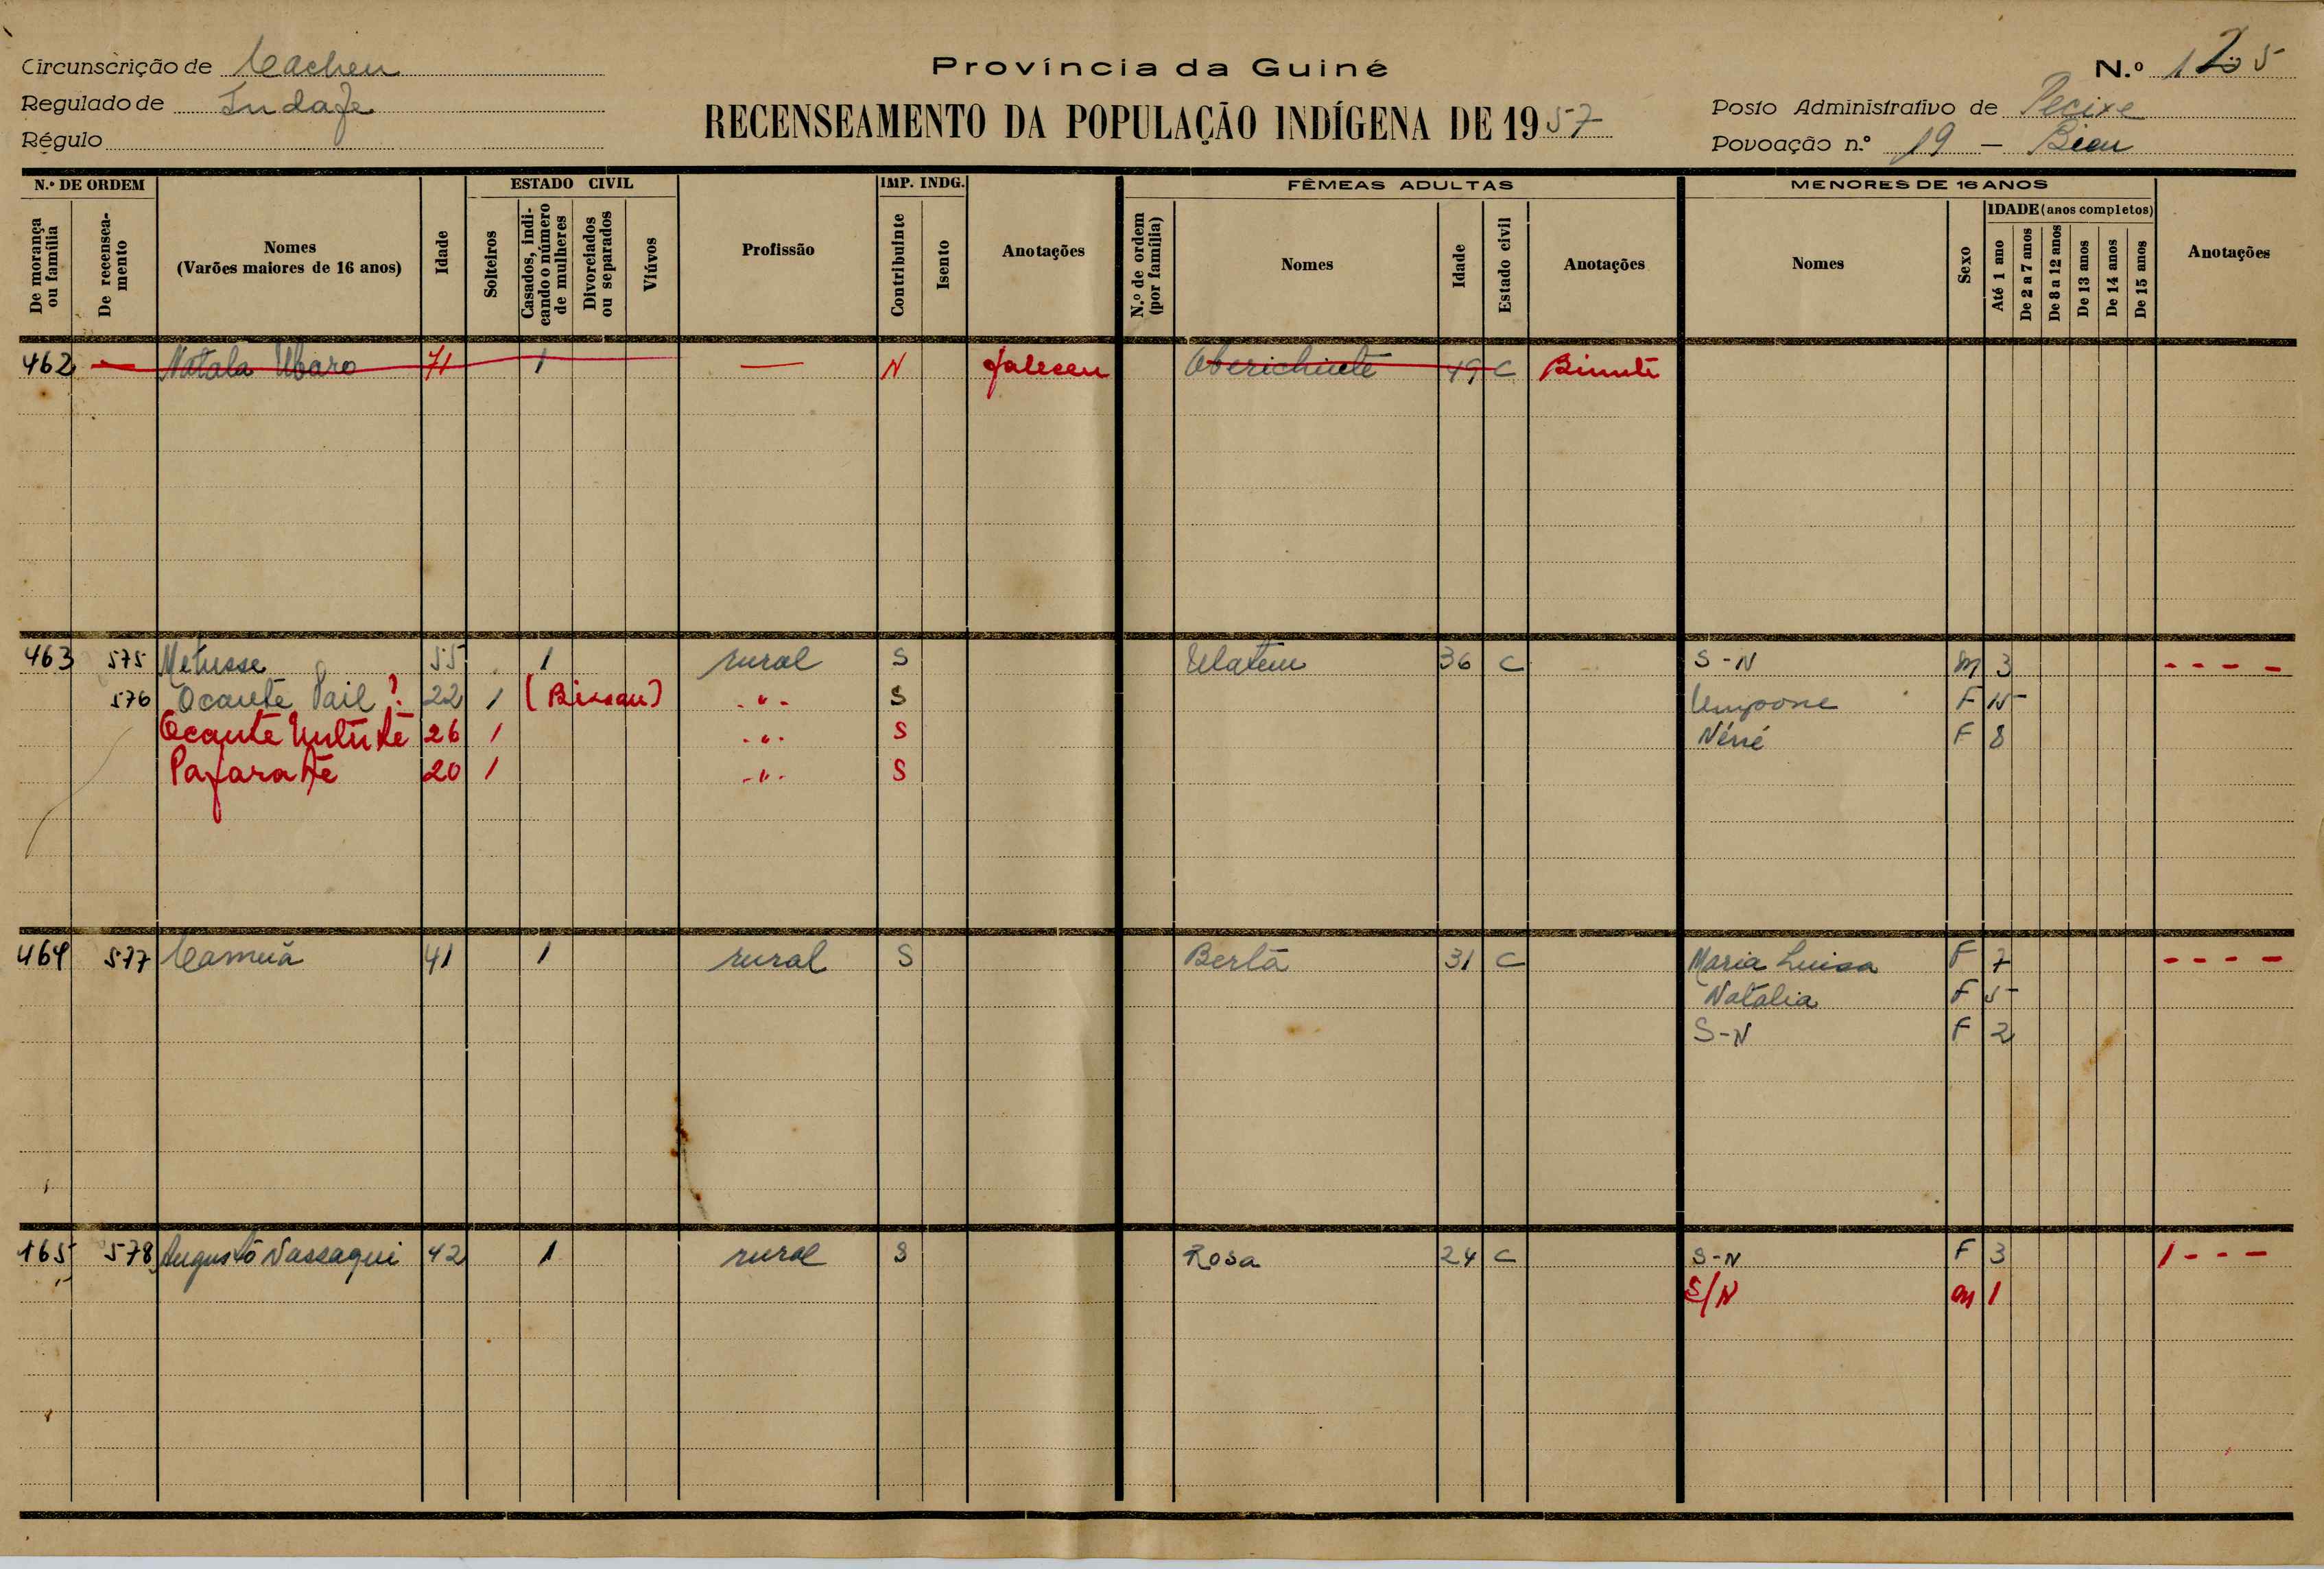 Circunscrição de Cacheu
Regulado de Indafe
Régulo
Província da Guiné
RECENSEAMENTO DA POPULAÇÃO INDÍGENA DE 1957
N.º 125
Posto Administrativo de Pecixe
Povoação n.º 19 - Bieu
N.º DE ORDEM
De morança ou família
De recenseamento
Nomes
(Varões maiores de 16 anos)
Idade
ESTADO CIVIL
Solteiros
Casados, indicando o número de mulheres
Divorciados ou separados
Viúvos
Profissão
IMP. INDG.
Contribuinte
Isento
Anotações
FÊMEAS ADULTAS
N.º de ordem (por família)
Nomes
Idade
Estado civil
Anotações
MENORES DE 16 ANOS
Nomes
Sexo
IDADE (anos completos)
Até 1 ano
De 2 a 7 anos
De 8 a 12 anos
De 13 anos
De 14 anos
De 15 anos
Anotações
462 — Natala Ubaro 71 1 — N faleceu Oberichinté 49 C Binunté
463 575 Metusse 55 1 rural S Ulatem 36 C S-N m 3 - - - -
576 Ocante Pail ? 22 1 (Bissau) -"- S Umpone F 15
Ocante Untunté 26 1 -"- S Néné F 8
Pafaraté 20 1 -"- S
464 577 Camuã 41 1 rural S Bertã 31 C Maria Luisa F 7 - - - -
Natalia F 5
S-N F 2
465 578 Augusto Nassaqui 42 1 rural S Rosa 24 C S-N F 3 1 - - -
S/N m 1